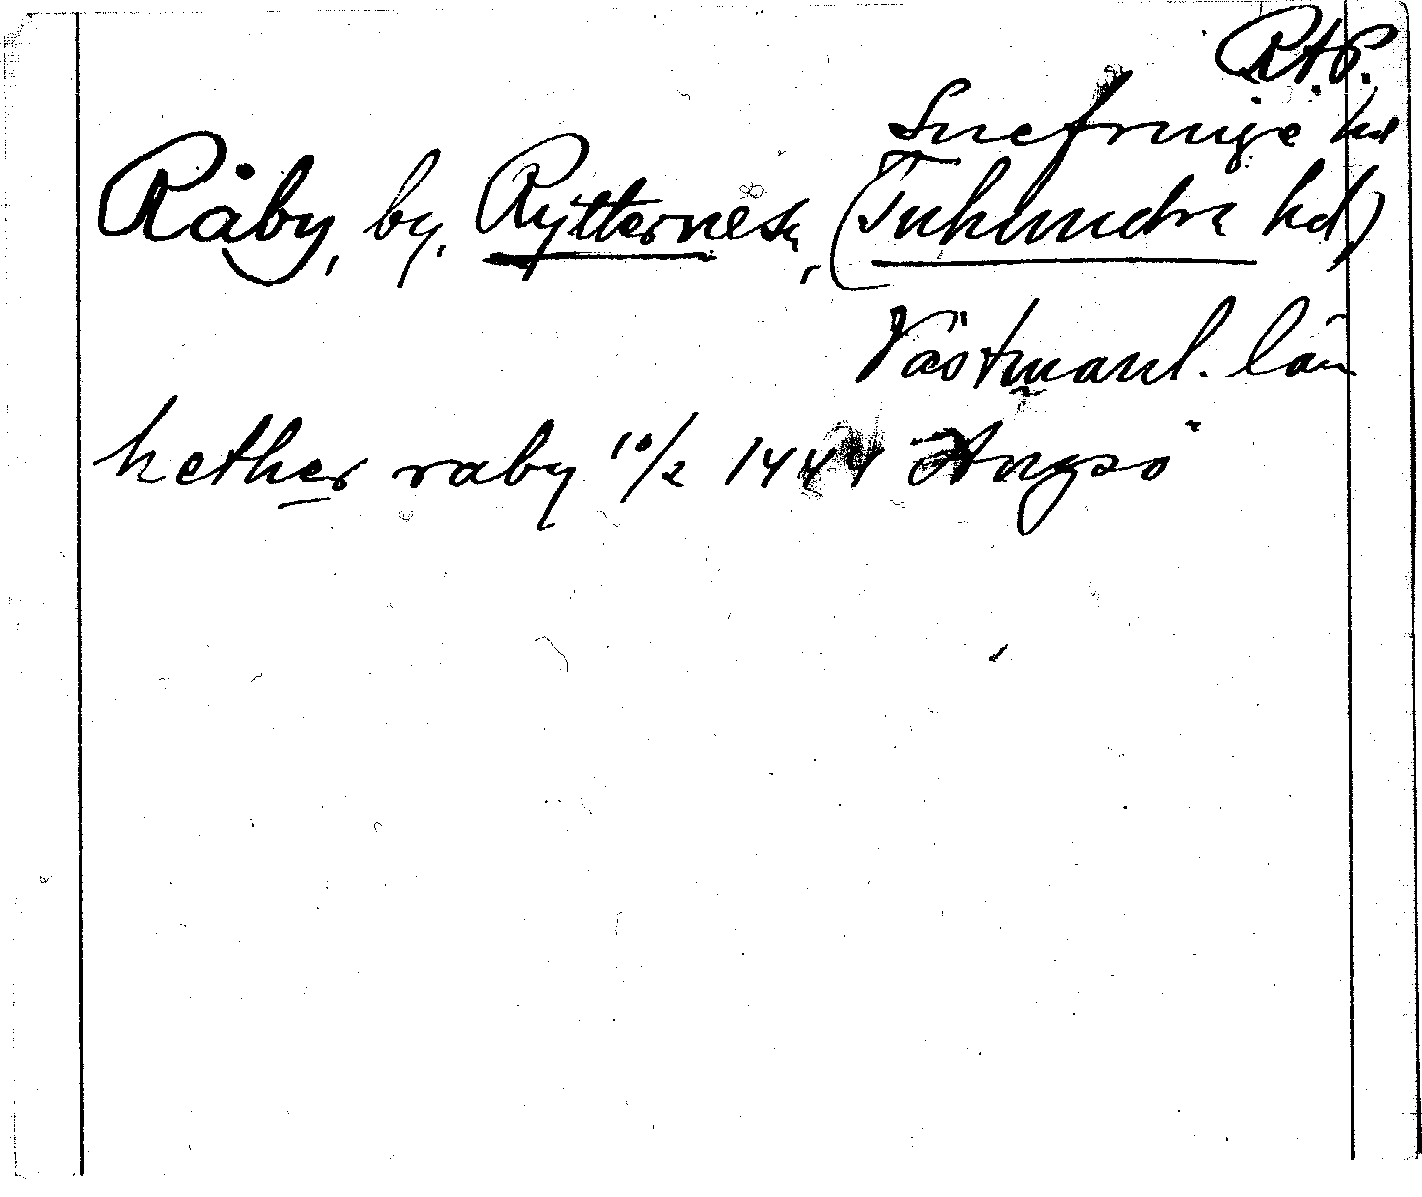 R.A.P.
Snefringe hd
Råby, by, Rytterne sk, (Tuhundra hd)
Västmanl. län
hether raby 10/2 1444 Ängsö